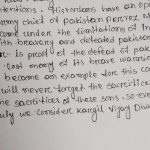 tentions. Historians have an op
army chief of pakistan pervez M
come under the limitations of In
with bravery and defeated pakistan
is proof of the defeat of pak
lost many of its brave warrio
become an example for this co
will never forget the sacrifice
the sacrifices of these sons, so ever
july we consider kargil Vijay Diw